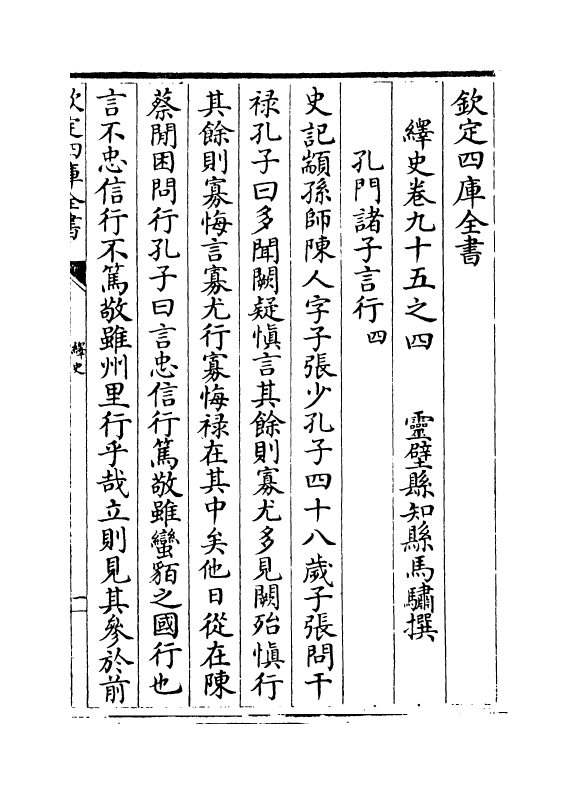 欽定四庫全書
繹史卷九十五之四　　靈壁縣知縣馬驌撰
孔門諸子言行四
史記顓孫師陳人字子張少孔子四十八歲子張問干
祿孔子曰多聞闕疑慎言其餘則寡尤多見闕殆慎行
其餘則寡悔言寡尤行寡悔祿在其中矣他日從在陳
蔡閒困問行孔子曰言忠信行篤敬雖蠻貊之國行也
言不忠信行不篤敬雖州里行乎哉立則見其參於前
欽定四庫全書
繹史
一